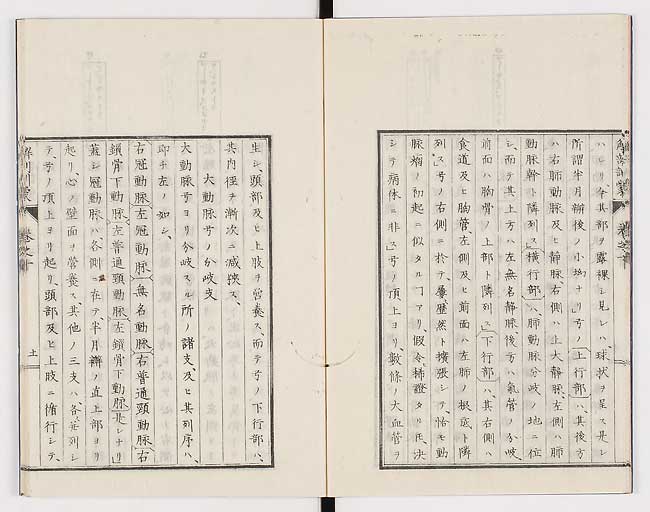 ハシリ今其部ヲ露裸シ見レハ、球状ヲ呈ス是レ
所謂半月瓣後ノ小㘭ナリ」弓ノ上行部ハ、其後方
ハ右肺動脉及ヒ静脉、右側ハ上大静脉、左側ハ肺
動脉幹ト隣列ス」横行部ハ、肺動脉分岐ノ地ニ位
シ、而テ其上方ハ左無名静脉、後方ハ氣管ノ分岐、
前面ハ胸骨ノ上部ト隣列ス」下行部ハ、其右側ハ
食道及ヒ胸管、左側及ヒ前面ハ左肺ノ根底ト隣
列ス」弓ノ右側ニ於テ、屢歴然ト擴張シテ、恰モ動
脉瘤ノ初起ニ似タルヿアリ、假令稀證タリ𪜈決
シテ病体ニ非ス」弓ノ頂上ヨリ、数條ノ大血管ヲ
生シ、頭部及ヒ上肢ヲ営養ス、而テ弓ノ下行部ハ、
其内徑ヲ漸次ニ减狹ス、
大動脉弓ノ分岐支
大動脉弓ヨリ分岐スル所ノ諸支、及ヒ其列序ハ、
即チ左ノ如シ、
右冠動脉左冠動脉無名動脉右普通頸動脉右
鎖骨下動脉左普通頸動脉左鎖骨下動脉是レナリ」
蓋シ冠動脉ハ、各側ニ在テ、半月瓣ノ直上部ヨリ
起リ、心ノ壁面ヲ營養ス、其他ノ三支ハ、各並列シ
テ弓ノ頂上ヨリ起リ、頭部及ヒ上肢ニ循行シテ、
解剖訓蒙
卷之十
十一